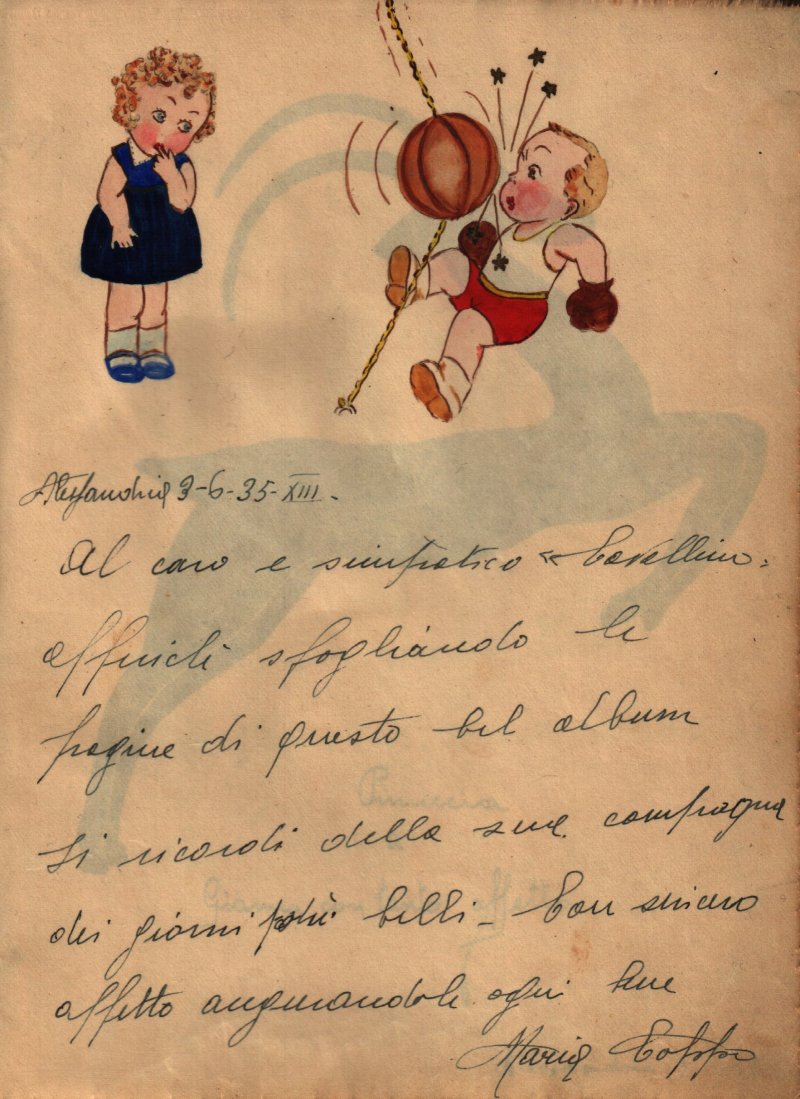 Alessandria 3-6-35-XIII.
Al caro e simpatico «Cavellino»
affinché sfogliando le
pagine di questo bel album
si ricordi della sua compagna
dei giorni più belli - Con sincero
affetto augurandole ogni bene
Maria Coppo